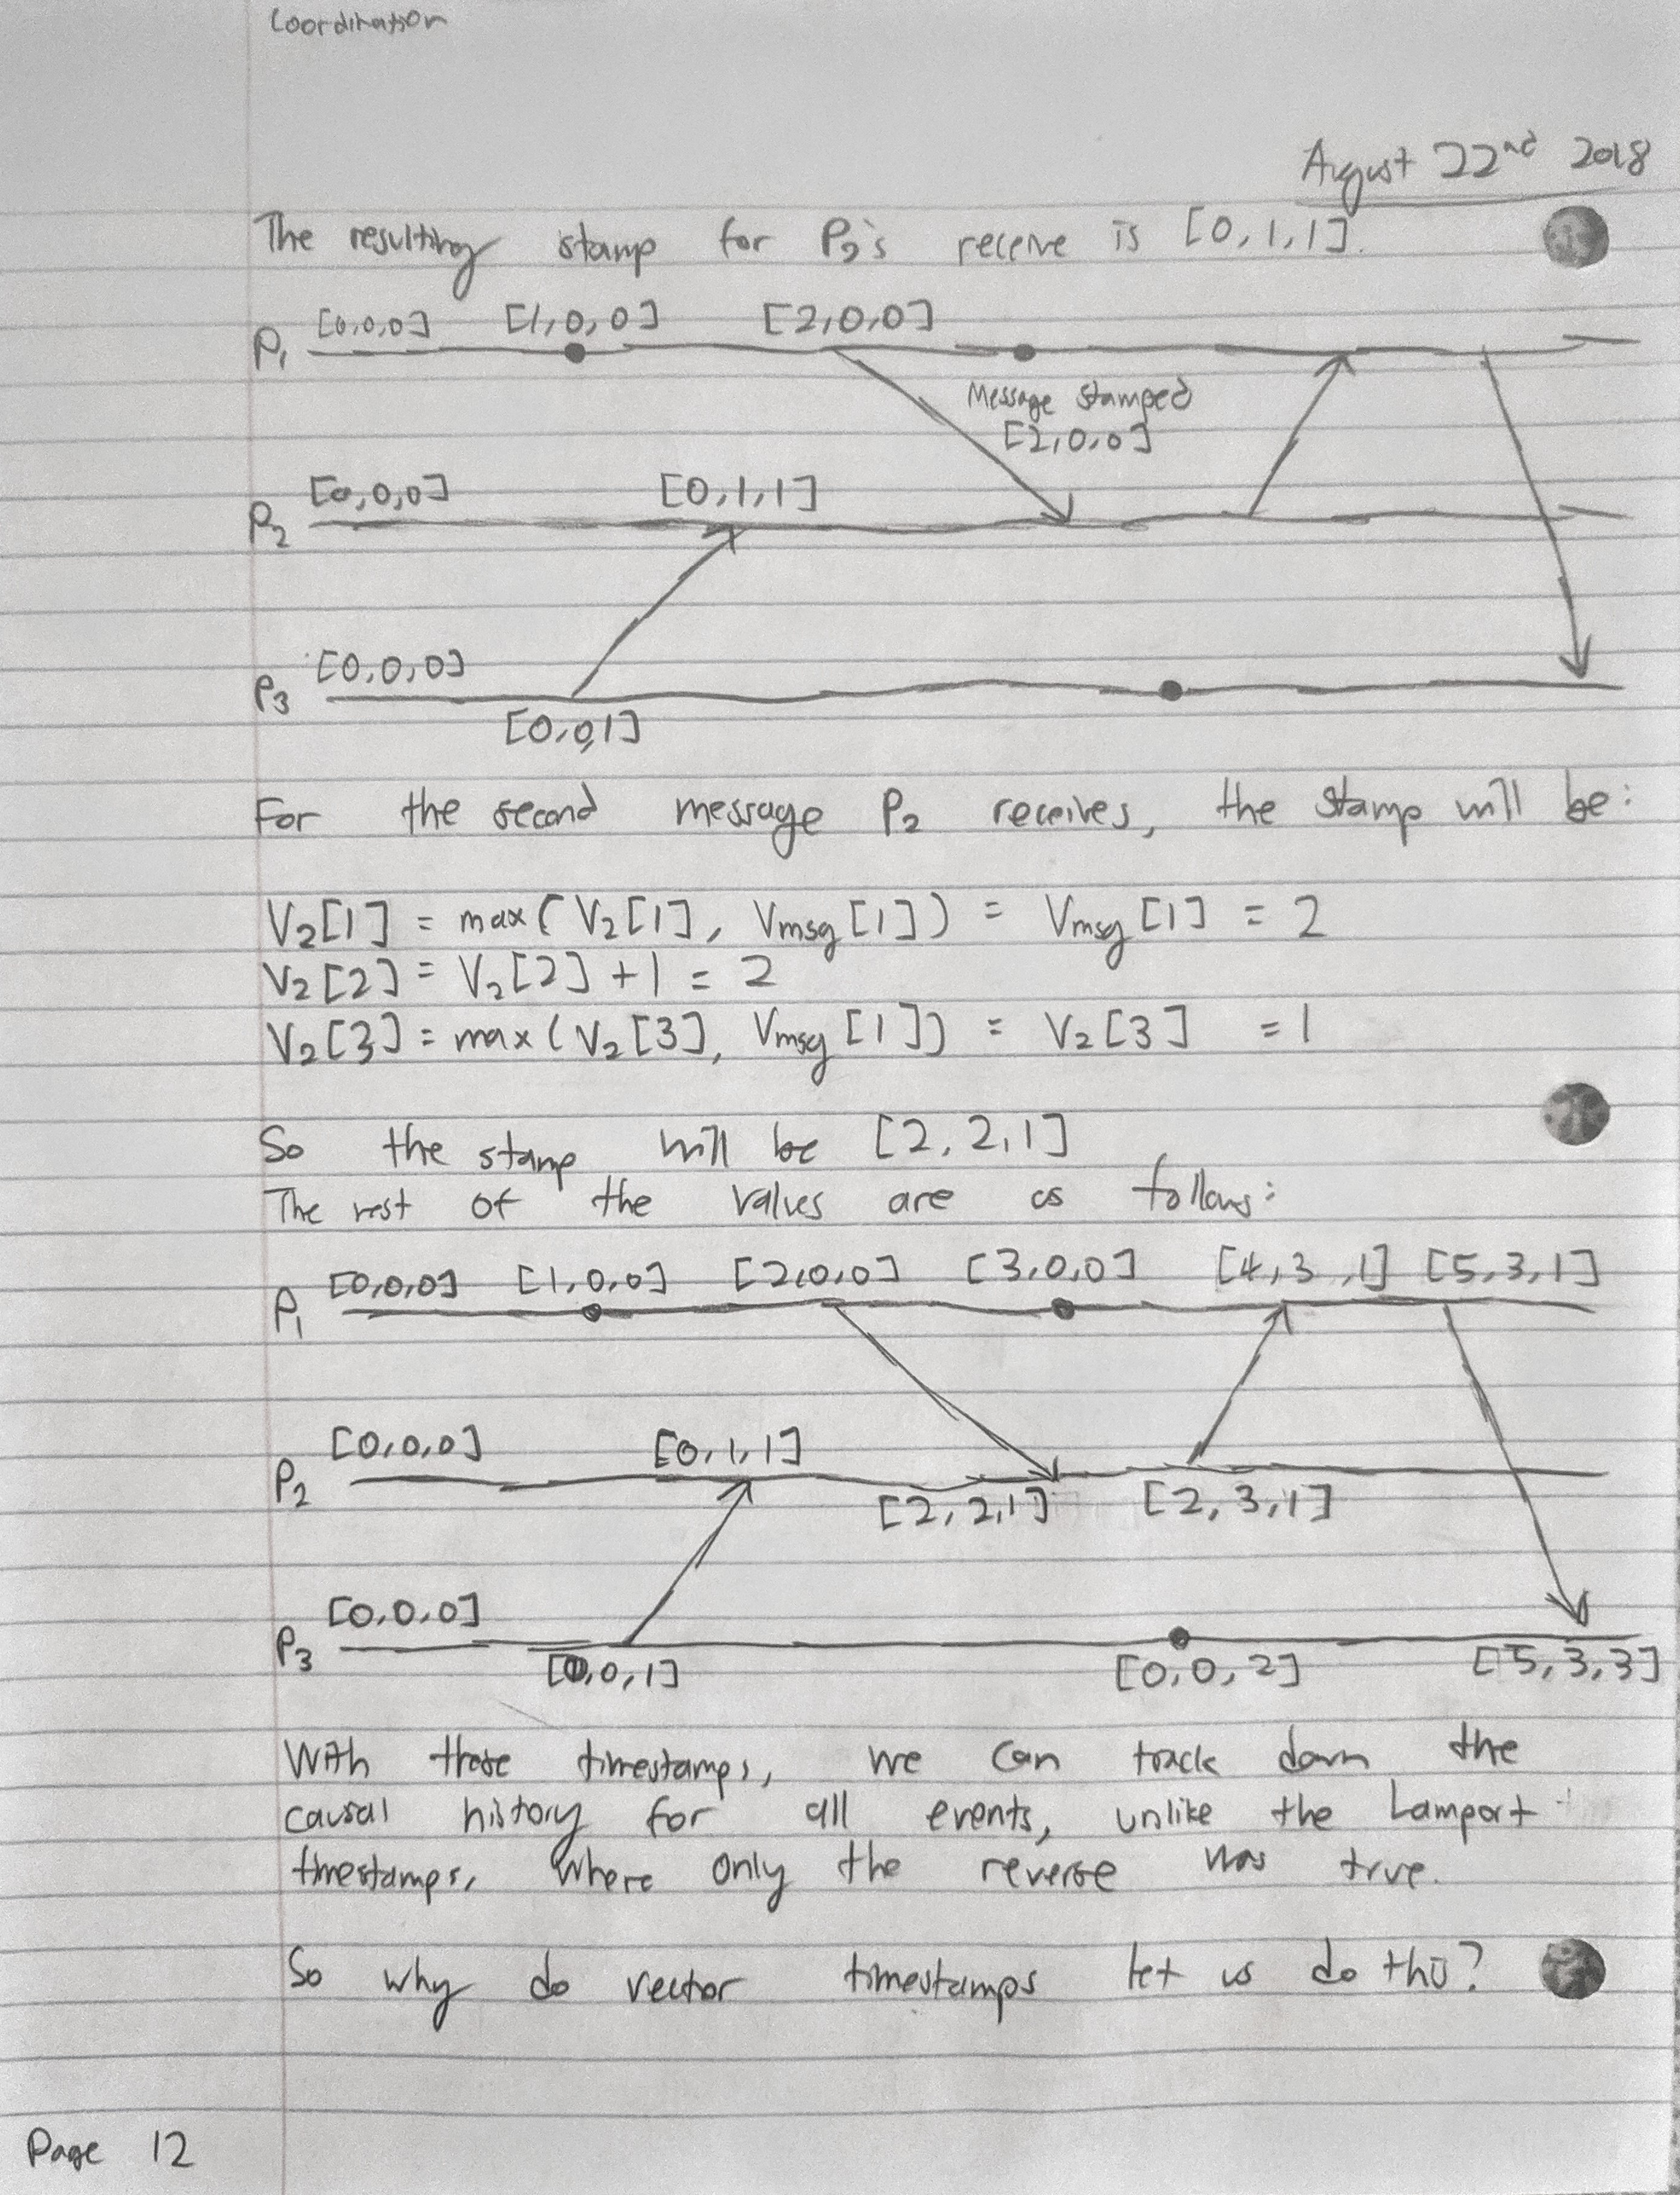 Coordination
August 22nd 2018
The resulting stamp for P2's receive is [0,1,1].
[0,0,0] [1,0,0] [2,0,0]
P1
Message stamped
[2,0,0]
[0,0,0] [0,1,1]
P2
[0,0,0]
P3
[0,0,1]
For the second message P2 receives, the stamp will be:
V2[1] = max(V2[1], Vmsg[1]) = Vmsg[1] = 2
V2[2] = V2[2] + 1 = 2
V2[3] = max(V2[3], Vmsg[1]) = V2[3] = 1
So the stamp will be [2,2,1]
The rest of the values are as follows:
[0,0,0] [1,0,0] [2,0,0] [3,0,0] [4,3,1] [5,3,1]
P1
[0,0,0] [0,1,1]
P2
[2,2,1] [2,3,1]
[0,0,0]
P3
[0,0,1] [0,0,2] [5,3,3]
With these timestamps, we can track down the
causal history for all events, unlike the Lamport
timestamps, where only the reverse was true.
So why do vector timestamps let us do this?
Page 12